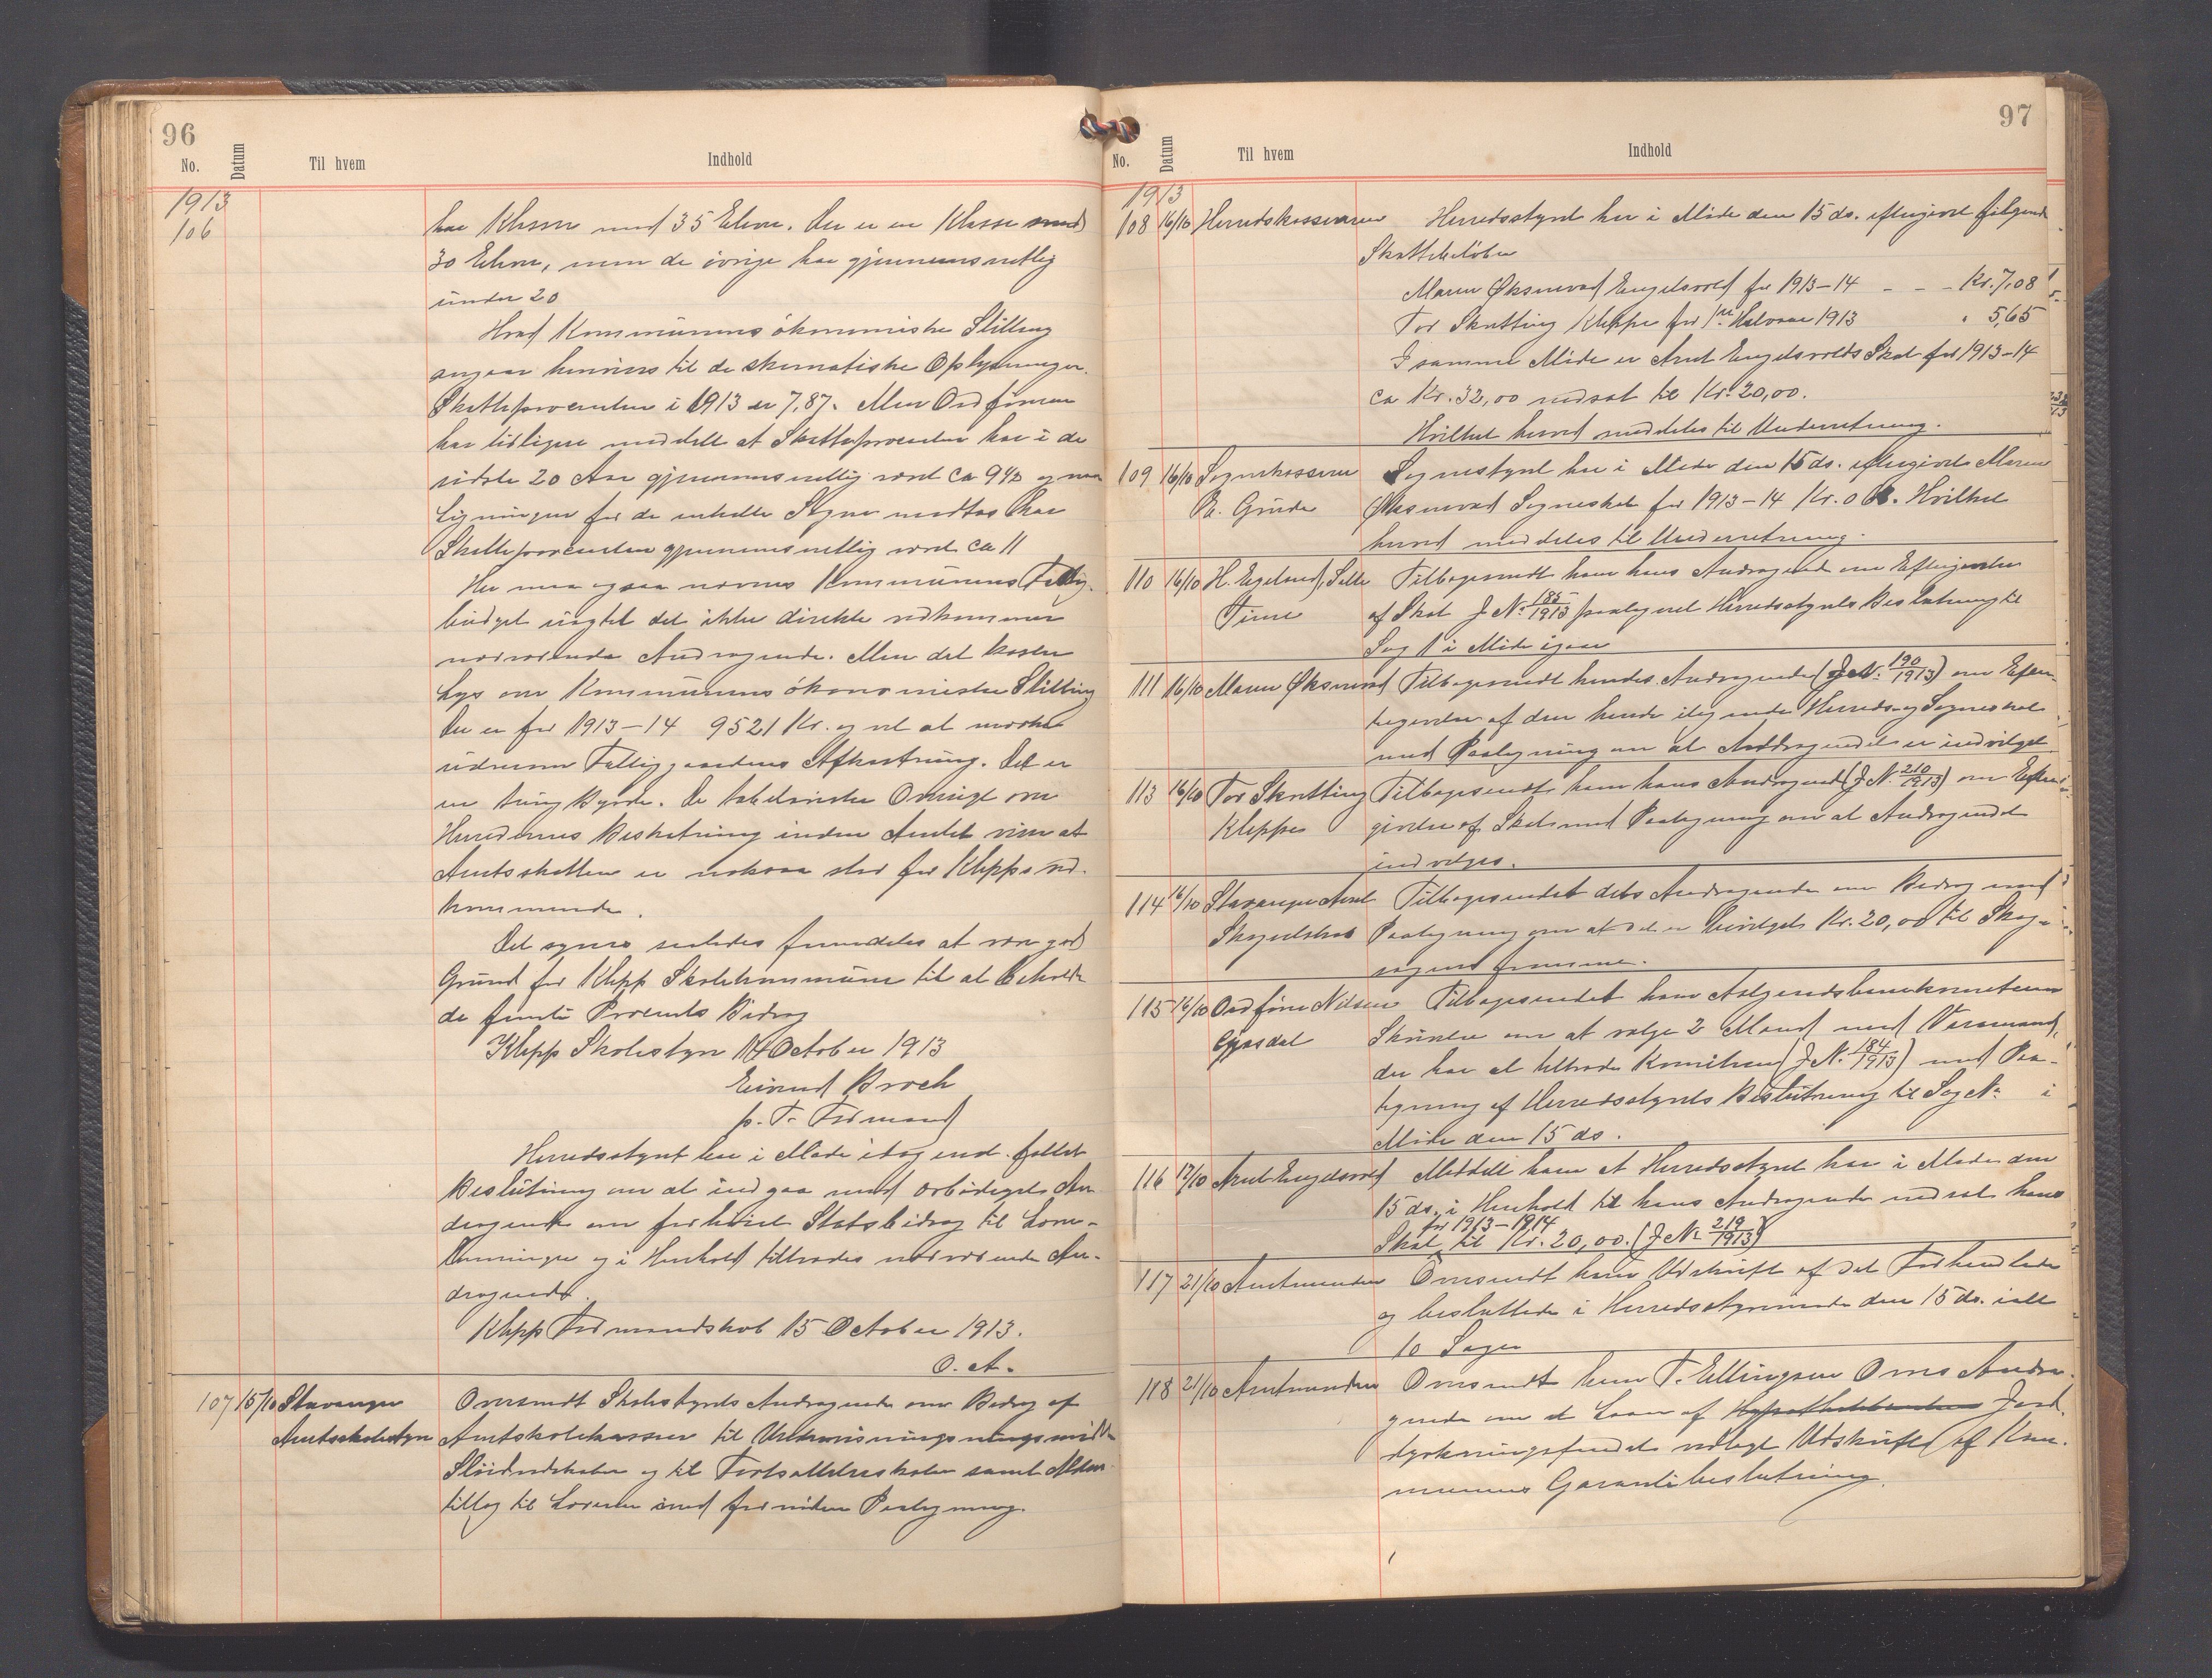 96
No. Datum Til hvem Indhold
1913
106
har Klasser med 35 Elever. Der er en Klasse med
30 Elever, men de övrige har gjennemsnitlig
under 20
Hvad Kommunens ökonomiske Stilling
angaar henvises til de skematiske Oplysninger.
Skatteprocenten i 1913 er 7,87. Men Ordföreren
har tidligere meddelt at Skatteprocenten har i de
sidste 20 Aar gjennemsnitlig været ca 9 1/2 og naar
Ligningen for de enkelte Sogne medtas har
Skatteprocenten gjennemsnitlig været ca 11
Her maa ogsaa nævnes Kommunens Fattig-
budget uagtet det ikke direkte vedkommer
nærværende Andragende. Men det kaster
Lys over Kommunens ökonomiske Stilling
Der er for 1913-14 9521 Kr. og vel at mærke
udenom Fattiggaardens Afkastning. Det er
en tung Byrde. De tabelariske Oversigt over
Herredernes Beskatning inden Amtet viser at
Amtsskatten er noksaa stor for Klepps ved-
kommende.
Det synes saaledes fremdeles at være god
Grund for Klepp Skolekommune til at beholde
de femti Procents Bidrag
Klepp Skolestyre 14 October 1913
Eivind Broch
p. T. Formand
Herredsstyret har i Møde idag end. fattet
Beslutning om at indgaa med ærbödigst An-
dragende om forhöiet Statsbidrag til Lærer-
lönninger og i Henhold tiltrædes nærværende An-
dragende.
Klepp Formandskab 15 October 1913.
O. A.
107 15/10 Stavanger Oversendt Skolestyrets Andragende om Bidrag af
Amtsskolestyre Amtsskolekassen til Undervisningsmidler
Slöidredskaber og til Fortsættelsesskoler samt Alders-
tillæg til Lærerne med fornöden Paategning.
97
No. Datum Til hvem Indhold
1913
108 16/10 Herredskassereren Herredsstyret har i Möde den 15 ds. eftergivet fölgende
Skattebelöber
Maren Øksnevad Engelsvold for 1913-14 - - - Kr. 7,08
Tor Skretting Kleppe for 1ste Halvaar 1913 " 5,65
I samme Möde er Arnt Engelsvolds Skat for 1913-14
ca Kr. 32,00 nedsat til Kr. 20,00.
Hvilket herved meddeles til Underretning.
109 16/10 Sognekasserer Sognestyret har i Möde den 15 ds. eftergivet Maren
Øksnevad Sogneskat for 1913-14 Kr. Hvilket
herved meddeles til Underretning.
110 16/10 H. Egeland, Selle Tilbagesendt ham hans Andragende om Eftergivelse
Time af Skat J. No. 185/1913 paategnet Herredsstyrets Beslutning til
Sag 1 i Möde igaar
111 16/10 Maren Øksnevad Tilbagesendt hendes Andragende (J. No. 190/1913) om Efter-
givelse af den hende ilignede Herreds og Sogneskat
med Paategning om at Andragendet er indvilget
113 16/10 Tor Skretting Tilbagesendt ham hans Andragende (J. N. 210/1913) om Efter-
Kleppe givelse af Skat med Paategning om at Andragendet
indvilges.
114 16/10 Stavanger Amt Tilbagesendet dets Andragende om Bidrag med
Skogselskab Paategning om at det er bevilget Kr. 20,00 til Skog-
sagens fremme.
115 16/10 Ordförer Nilsen Tilbagesendet ham
Gjesdal Skrivelse om at vælge 2 Mænd med Varamænd,
der har at tiltræde Komiteen (J. N. 184/1913) med Paa-
tegning af Herredsstyrets Beslutning til Sag No. i
Möde den 15 ds.
116 17/10 Arnt Engelsvold Meddelt ham at Herredsstyret har i Möde den
15 ds. i Henhold til hans Andragende nedsat hans
for 1913-1914
Skat til Kr. 20,00. (J. No. 219/1913)
117 21/10 Amtmanden Oversendt ham Udskrift af det Forhandlede
og besluttede i Herredsstyremöde den 15 ds. ialt
10 Sager
118 21/10 Amtmanden Oversendt ham T. Ellingsen Orres Andra-
gende om et Laan af Hypothekbanken Jord-
dyrkningsfondet vedlagt Udskrift af Kom-
munens Garantibeslutning.